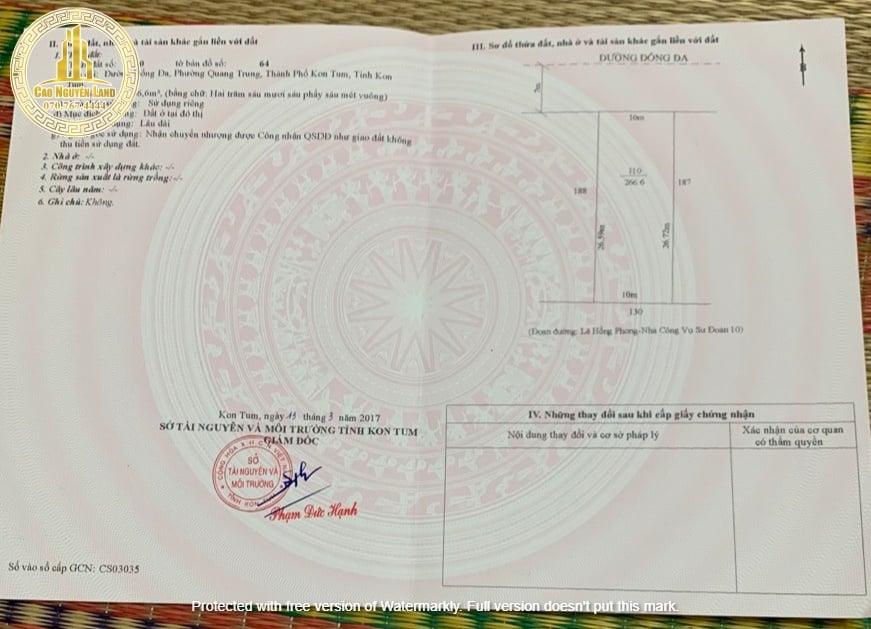 II. đất, nhà ở và tài sản khác gắn liền với đất
1. đất:
đất số: 0 tờ bản đồ số: 64
Đường Đống Đa, Phường Quang Trung, Thành Phố Kon Tum, Tỉnh Kon
Tum
6,6m², (bằng chữ: Hai trăm sáu mươi sáu phẩy sáu mét vuông)
Sử dụng riêng
d) Mục đích Đất ở tại đô thị
Lâu dài
sử dụng: Nhận chuyển nhượng được Công nhận QSDĐ như giao đất không
thu tiền sử dụng đất.
2. Nhà ở: -/-
3. Công trình xây dựng khác: -/-
4. Rừng sản xuất là rừng trồng: -/-
5. Cây lâu năm: -/-
6. Ghi chú: Không.
CAO NGUYÊN LAND
III. Sơ đồ thửa đất, nhà ở và tài sản khác gắn liền với đất
ĐƯỜNG ĐỐNG ĐA
10m
110
266.6
188
187
26.59m
26.72m
10m
130
(Đoạn đường: Lê Hồng Phong-Nhà Công Vụ Sư Đoàn 10)
Kon Tum, ngày 13 tháng 3 năm 2017
SỞ TÀI NGUYÊN VÀ MÔI TRƯỜNG TỈNH KON TUM
GIÁM ĐỐC
SỞ
TÀI NGUYÊN VÀ
MÔI TRƯỜNG
Phạm Đức Hạnh
IV. Những thay đổi sau khi cấp giấy chứng nhận
Nội dung thay đổi và cơ sở pháp lý
Xác nhận của cơ quan
có thẩm quyền
Số vào sổ cấp GCN: CS03035
Protected with free version of Watermarkly. Full version doesn't put this mark.